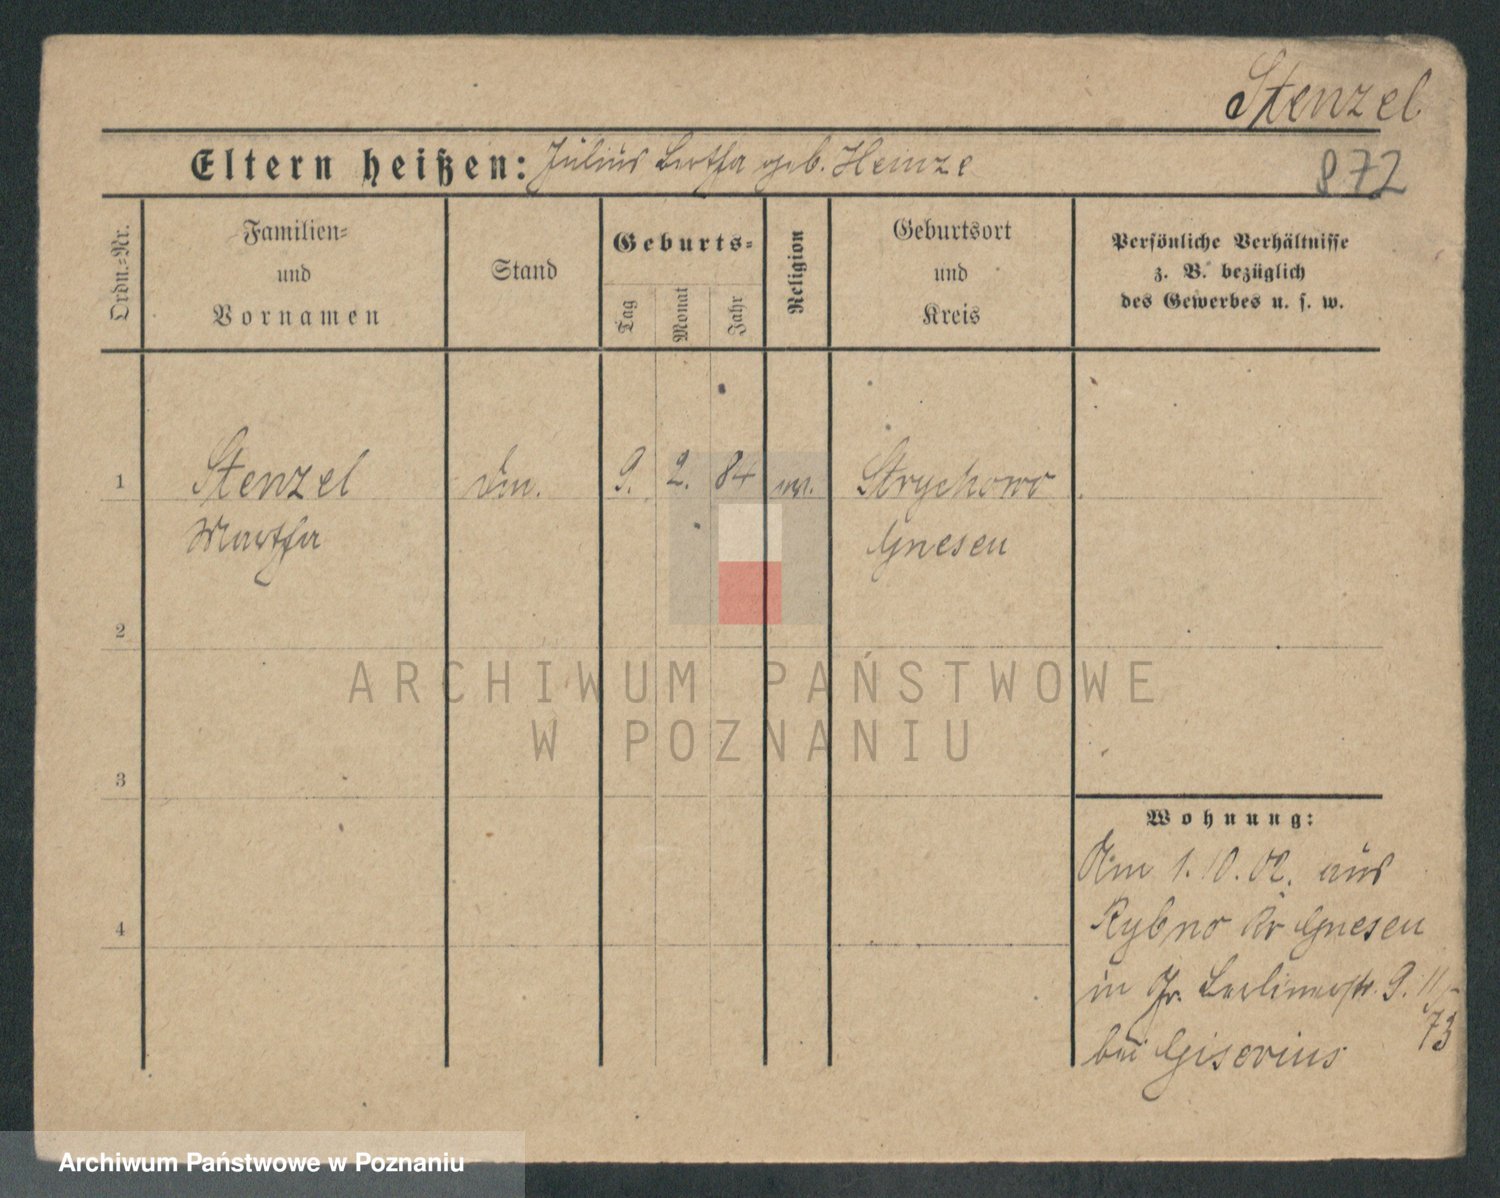 Stenzel
Eltern heißen: Julius Bertha geb. Heinze
872
Ordn.-Nr.
Familien-
und
Vornamen
Stand
Geburts-
Tag
Monat
Jahr
Religion
Geburtsort
und
Kreis
Persönliche Verhältnisse
z. B. bezüglich
des Gewerbes u. s. w.
1
Stenzel
Martha
9. 2. 84
Strychowo
Gnesen
2
3
4
Wohnung:
Am 1. 10. 02. aus
Rybno Kr Gnesen
in Jr. Berlinerstr. 9. 11/
73
bei Giserius
ARCHIWUM PAŃSTWOWE
W POZNANIU
Archiwum Państwowe w Poznaniu